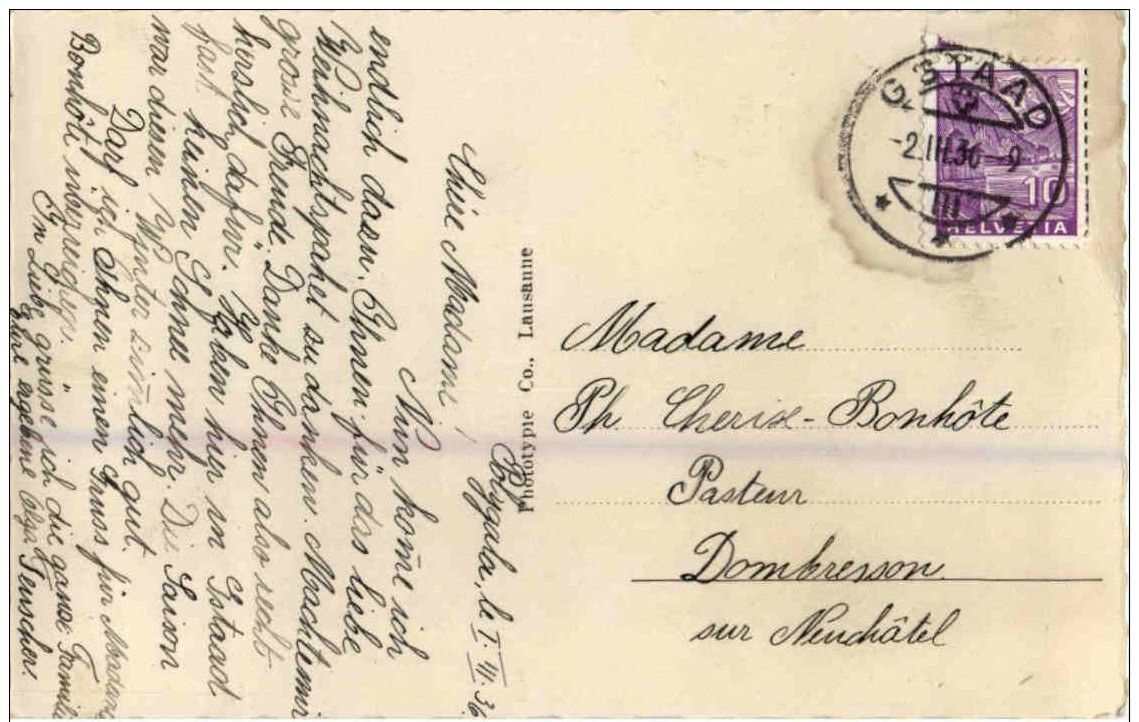 GSTAAD
-2.III.36-9
III
10
HELVETIA
Phototypie Co., Lausanne
Madame
Ph Cherix-Bonhôte
Pasteur
Dombresson
sur Neuchâtel
le I. III. 36
Chère Madame!
Nun kom̄e ich
endlich dazu, Ihnen für das liebe
Weihnachtspaket zu danken. Machte mir
grosse Freude. Danke Ihnen also recht
herzlich dafür. Haben hier in Gstaad
fast keinen Schnee mehr. Die Saison
war diesen Winter ziem̄lich gut.
Darf ich Ihnen einen Gruss für Madame
Bonhôte
In Liebe grüsse ich die ganze Familie
Ihre ergebene Olga Teuscher.